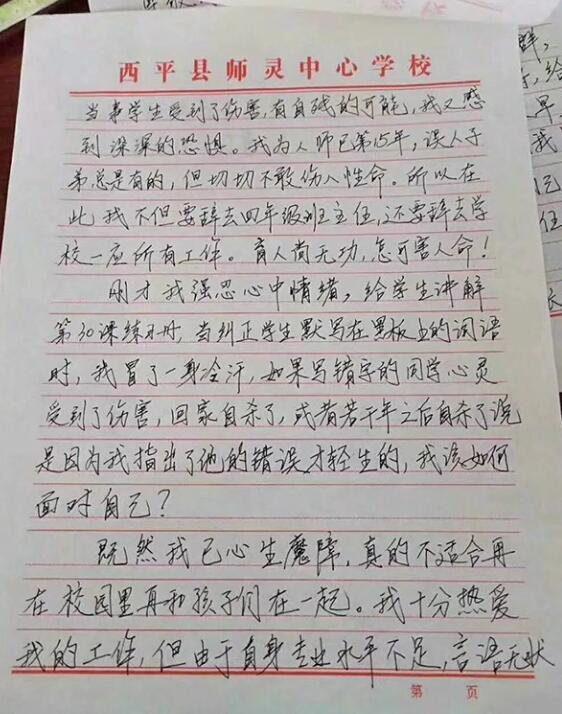 西平县师灵中心学校
当事学生受到了伤害,有自残的可能,我又感
到深深的恐惧。我为人师已第15年,误人子
弟总是有的,但切切不敢伤人性命。所以在
此我不但要辞去四年级班主任,还要辞去学
校一应所有工作。育人尚无功,怎可害人命!
刚才我强忍心中情绪,给学生讲解
第30课练习册,当纠正学生默写在黑板上的词语
时,我冒了一身冷汗,如果写错字的同学心灵
受到了伤害,回家自杀了,或者若干年之后自杀了说
是因为我指出了他的错误才轻生的,我该如何
面对自己?
既然我已心生魔障,真的不适合再
在校园里再和孩子们在一起。我十分热爱
我的工作,但由于自身专业水平不足,言语无状
第 页